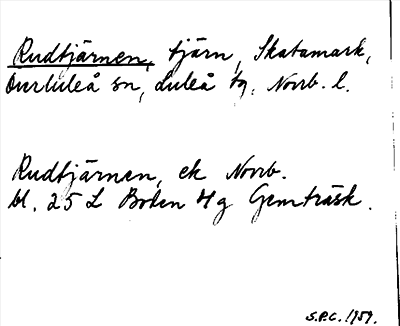 Rudtjärnen, tjärn, Skatamark,
Överluleå sn, Luleå tg. Norrb. l.
Rudtjärnen, ek Norrb.
bl. 25 L Boden 4g Gemträsk.
S.P.C. 1959.